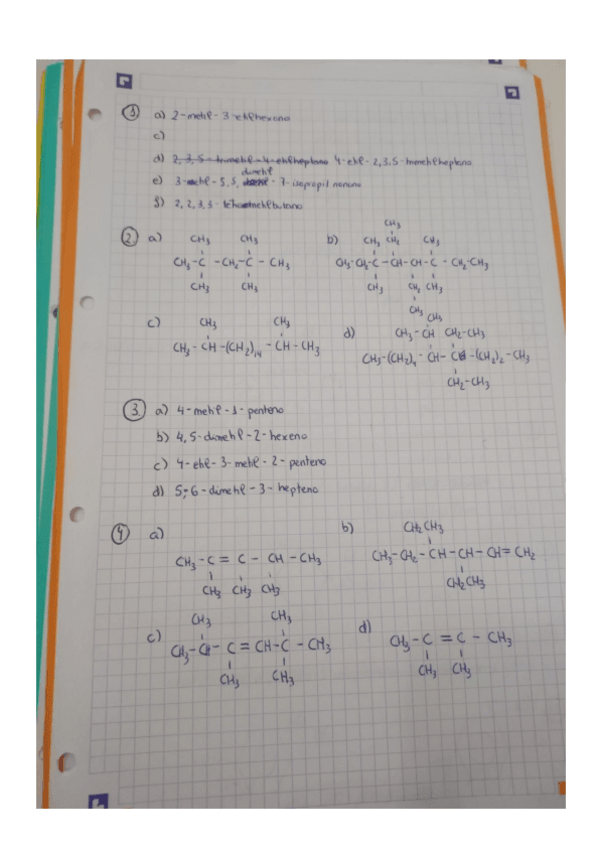 1 a) 2-metil-3-etilhexano
c)
d) 2,3,5-trimetil-4-etilheptano 4-etil-2,3,5-trimetilheptano
dimetil
e) 3-etil-5,5, - 7-isopropil nonano
f) 2,2,3,3-tetrametilbutano
2 a) CH3 CH3
CH3-C-CH2-C-CH3
CH3 CH3
b) CH3
CH3 CH2 CH3
CH3-CH2-C-CH-CH-C-CH2-CH3
CH3 CH2 CH3
CH3
c) CH3 CH3
CH3-CH-(CH2)14-CH-CH3
d) CH3
CH3-CH CH2-CH3
CH3-(CH2)4-CH-C-(CH2)2-CH3
CH2-CH3
3. a) 4-metil-1-penteno
b) 4,5-dimetil-2-hexeno
c) 4-etil-3-metil-2-penteno
d) 5,6-dimetil-3-hepteno
4 a)
CH3-C=C-CH-CH3
CH3 CH3 CH3
b) CH2CH3
CH3-CH2-CH-CH-CH=CH2
CH2CH3
c) CH3 CH3
CH3-CH-C=CH-C-CH3
CH3 CH3
d)
CH3-C=C-CH3
CH3 CH3